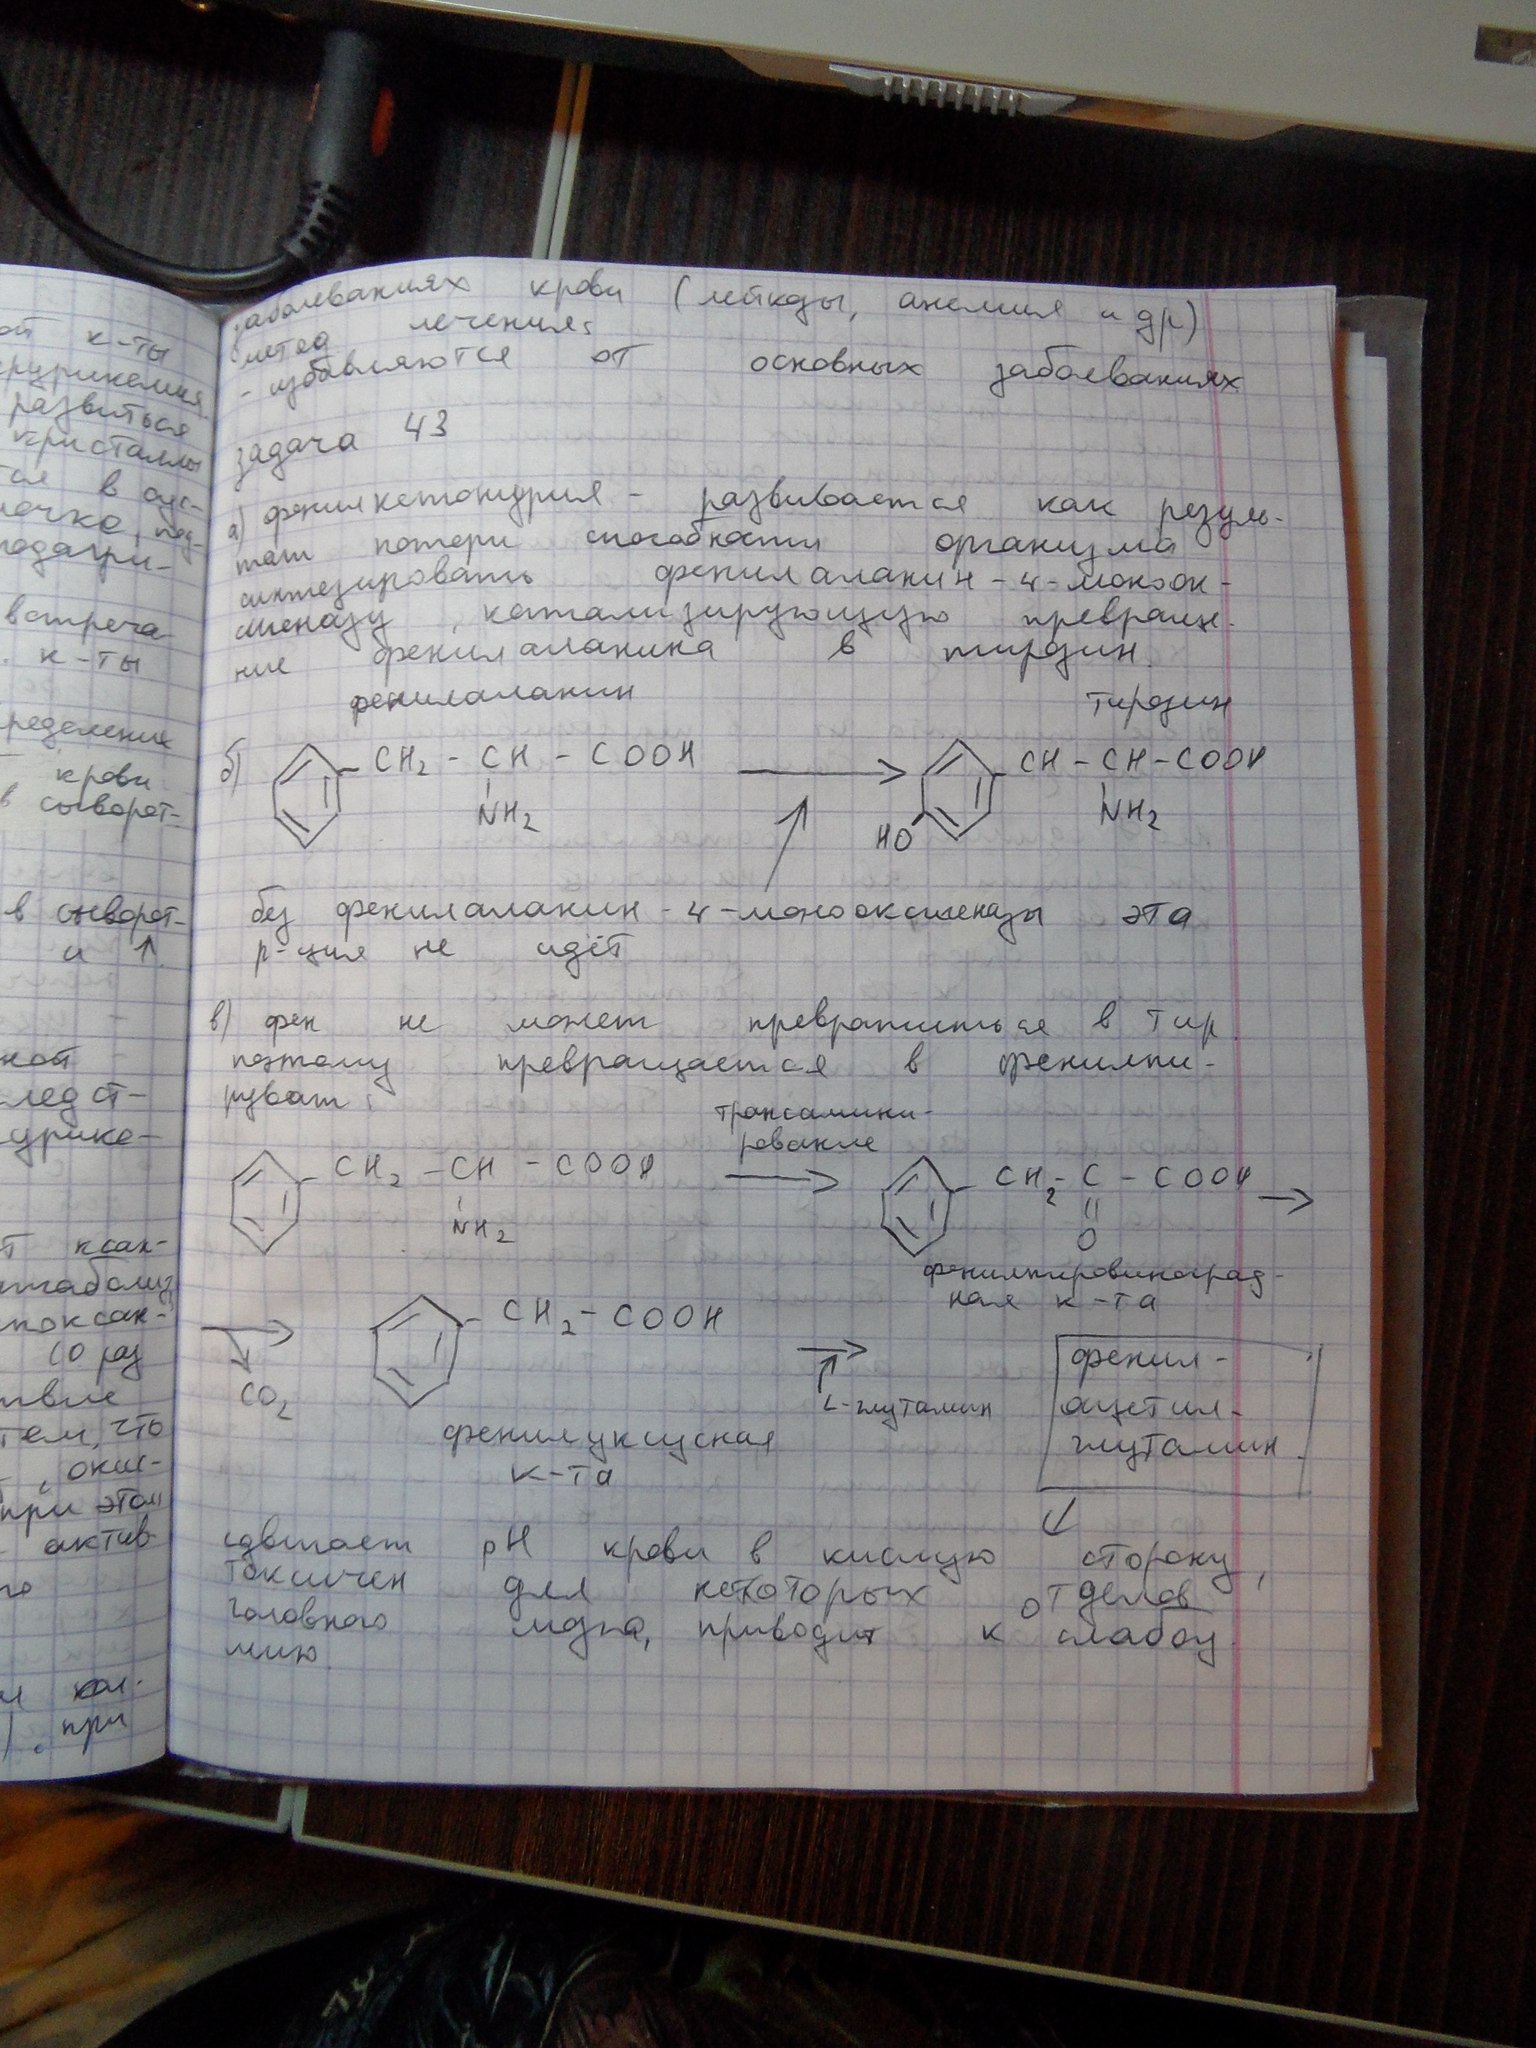 ой к-ты
развиться
кристаллы
встреча-
к-ты
крови
в сыворот-
в сыворот-
и ↑
ной
следст-
урике-
CO2
при этом
актив-
при
заболеваниях крови (лейкозы, анемия и др)
метод лечения:
- избавляются от основных заболеваниях
задача 43
а) фенилкетонурия - развивается как резуль-
тат потери способности организма
синтезировать фенилаланин-4-моноок-
сигеназу, катализирующую превраще-
ние фенилаланина в тирозин.
фенилаланин тирозин
б) CH2 - CH - COOH → CH - CH - COOH
NH2 HO NH2
без фенилаланин-4-монооксигеназы эта
р-ция не идёт
в) фен не может превратиться в тир
поэтому превращается в фенилпи-
руват:
трансамини-
рование
CH2 - CH - COOH → CH2 - C - COOH →
NH2 O
фенилпировиноград-
ная к-та
→ CH2 - COOH → фенил-
CO2 L-глутамин ацетил-
фенилуксусная глутамин
к-та
сдвигает pH крови в кислую сторону,
токсичен для некоторых отделов
головного мозга, приводит к слабоу
мию